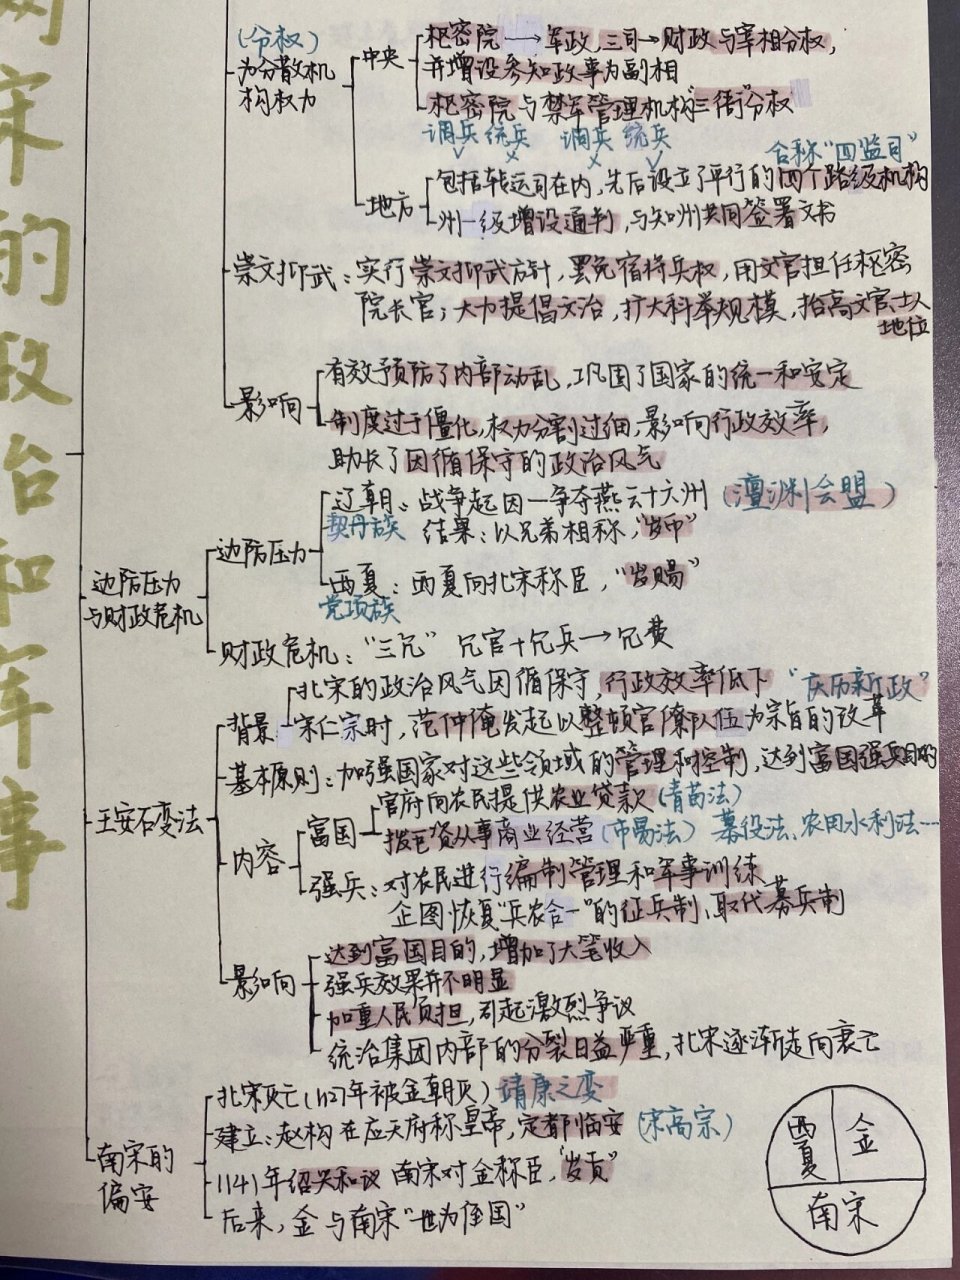 两宋的政治和军事
(分权)
为分散机
构权力
中央
枢密院→军政,三司→财政与宰相分权,
并增设参知政事为副相
枢密院与禁军管理机构"三衙"分权
调兵 统兵 调兵 统兵
合称"四监司"
地方
包括转运司在内,先后设立了平行的四个路级机构
州一级增设通判,与知州共同签署文书
崇文抑武:实行崇文抑武方针,罢免宿将兵权,用文官担任枢密
院长官;大力提倡文治,扩大科举规模,抬高文官士人
地位
影响
有效预防了内部动乱,巩固了国家的统一和安定
制度过于僵化,权力分割过细,影响行政效率,
助长了因循保守的政治风气
边防压力
与财政危机
边防压力
辽朝:战争起因—争夺燕云十六州(澶渊会盟)
契丹族 结果:以兄弟相称,"岁币"
西夏:西夏向北宋称臣,"岁赐"
党项族
财政危机:"三冗" 冗官+冗兵→冗费
王安石变法
背景
北宋的政治风气因循保守,行政效率低下 "庆历新政"
宋仁宗时,范仲淹发起以整顿官僚队伍为宗旨的改革
基本原则:加强国家对这些领域的管理和控制,达到富国强兵目的
内容
富国
官府向农民提供农业贷款(青苗法)
拨巨资从事商业经营(市易法) 募役法、农田水利法…
强兵:对农民进行编制管理和军事训练
企图恢复"兵农合一"的征兵制,取代募兵制
影响
达到富国目的,增加了大笔收入
强兵效果并不明显
加重人民负担,引起激烈争议
统治集团内部的分裂日益严重,北宋逐渐走向衰亡
南宋的
偏安
北宋灭亡(1127年被金朝灭)靖康之变
建立:赵构在应天府称皇帝,定都临安(宋高宗)
1141年绍兴和议 南宋对金称臣,"岁贡"
后来,金与南宋"世为侄国"
西夏
金
南宋